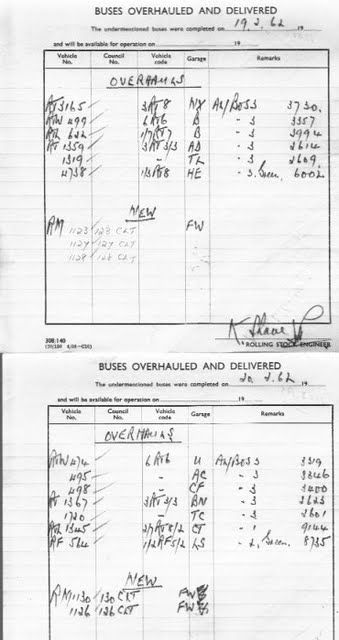 BUSES OVERHAULED AND DELIVERED
The undermentioned buses were completed on 19.2.62 19
and will be available for operation on 19
Vehicle No. Council No. Vehicle code Garage Remarks
OVERHAULS
RT 3165 3RT8 AW/BOSS 3730.
RTW 499 6RT6 B - 3 3357
RTL 622 1/7RT7 B - 3 3994
RT 1359 3RT3/3 AD - 3 2614
1319 - TL - 3 2609.
4738 1/3RT8 HE - 3. Green. 6002
NEW
RM 1123 123 CLT FW
1127 127 CLT
1128 128 CLT
ROLLING STOCK ENGINEER
308/140
BUSES OVERHAULED AND DELIVERED
The undermentioned buses were completed on 20.2.62 19
and will be available for operation on 19
Vehicle No. Council No. Vehicle code Garage Remarks
OVERHAULS
RTW 474 6RT6 U AW/BOSS 3319
495 - AC - 3 3346
498 - CF - 3 3400
RT 1367 3RT3/3 BN - 3 2623
1720 - TC - 3 2601
RTL 1345 2/7RT8/2 CT - 1 9144
RF 564 1/2RF5/2 LS - 2, Green. 8735
NEW
RM 1130 130 CLT FW
1126 126 CLT FW